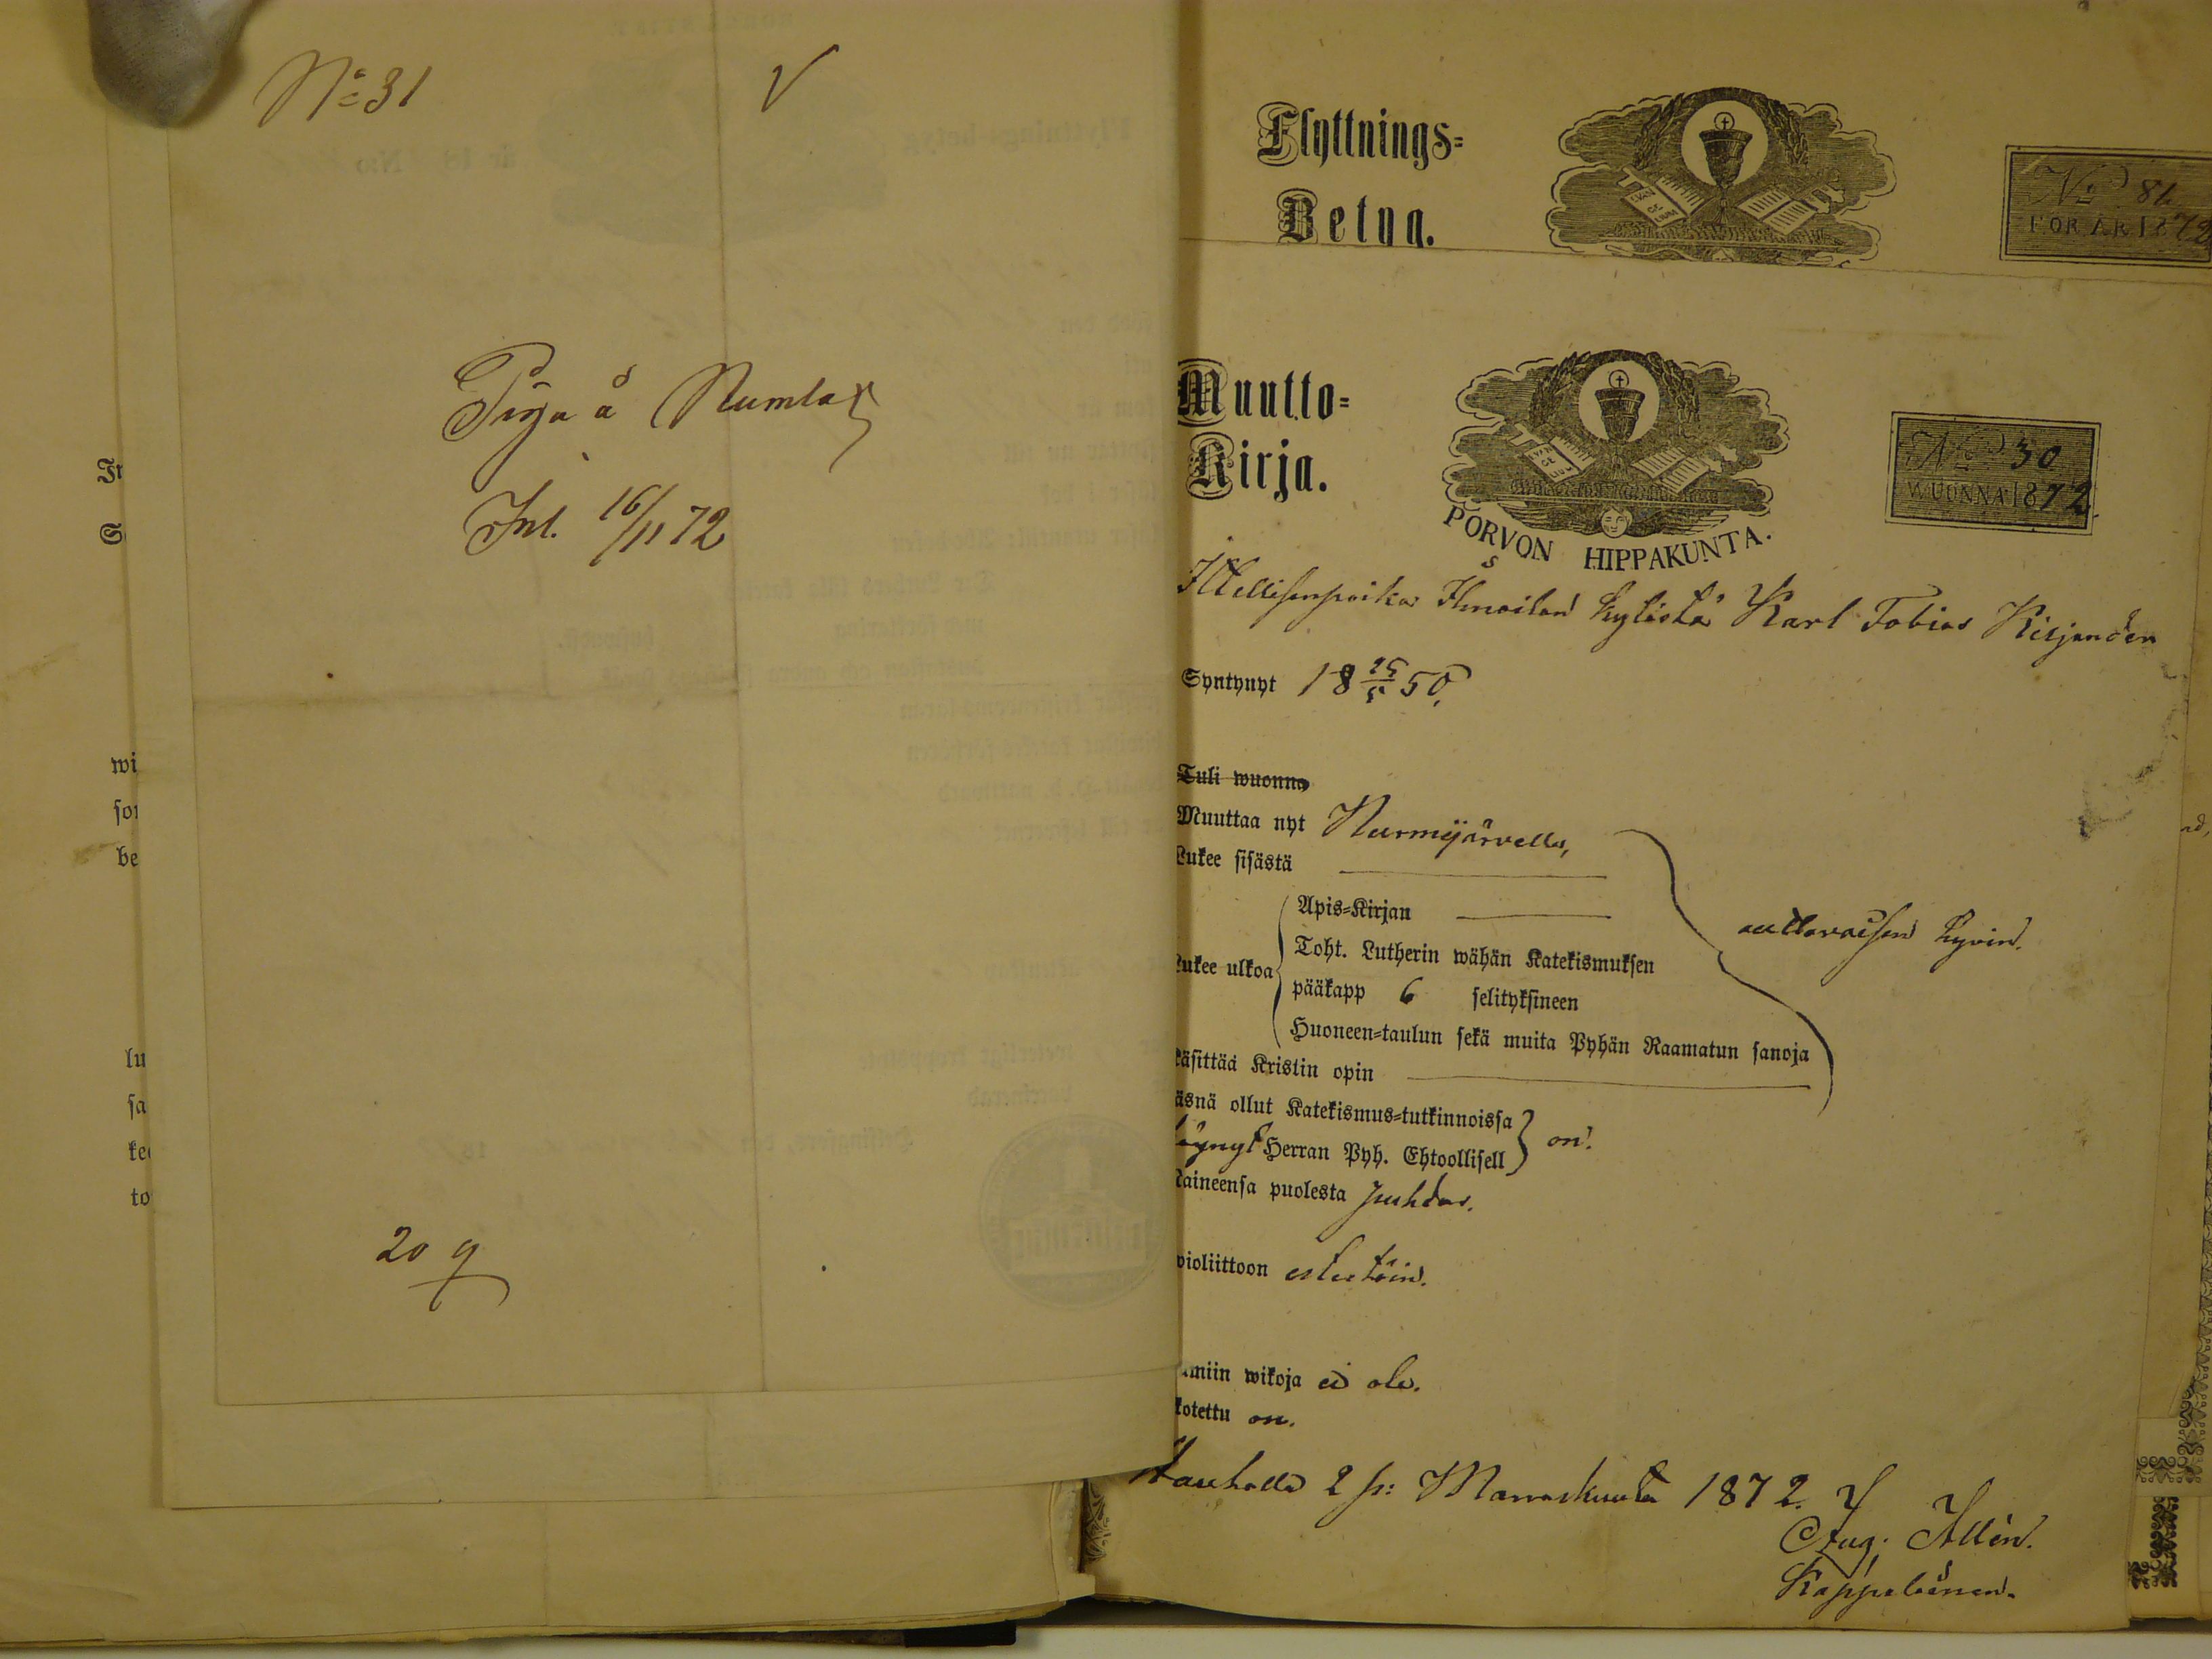 No 31
V
Piga å Numlax
Inl. 16/11 72
20 q
In
S
wi
son
be
lu
sa
ke
to
Flyttnings=
Betyg.
No 81
FÖR ÅR 1872
Muutto=
Kirja.
No 30
WUONNA 1872.
PORVON HIPPAKUNTA.
Itsellisenpoika kylästä Karl Tobias
Syntynyt 18 25/5 50.
Tuli wuonna
Muuttaa nyt Nurmijärvelle,
Lukee sisästä
Apis=Kirjan
Lukee ulkoa
Toht. Lutherin wähän Katekismuksen
pääkapp 6 selityksineen
Huoneen=taulun sekä muita Pyhän Raamatun sanoja
auttavaisen hyvin.
käsittää Kristin opin
äsnä ollut Katekismus=tutkinnoissa
käynyt Herran Pyh. Ehtoollisell
on.
Maineensa puolesta puhdas.
violiittoon esteetöin.
miin wikoja ei ole.
kotettu on.
Hauholla 2 p: Marraskuuta 1872.
Aug. Allén.
Kappalainen.